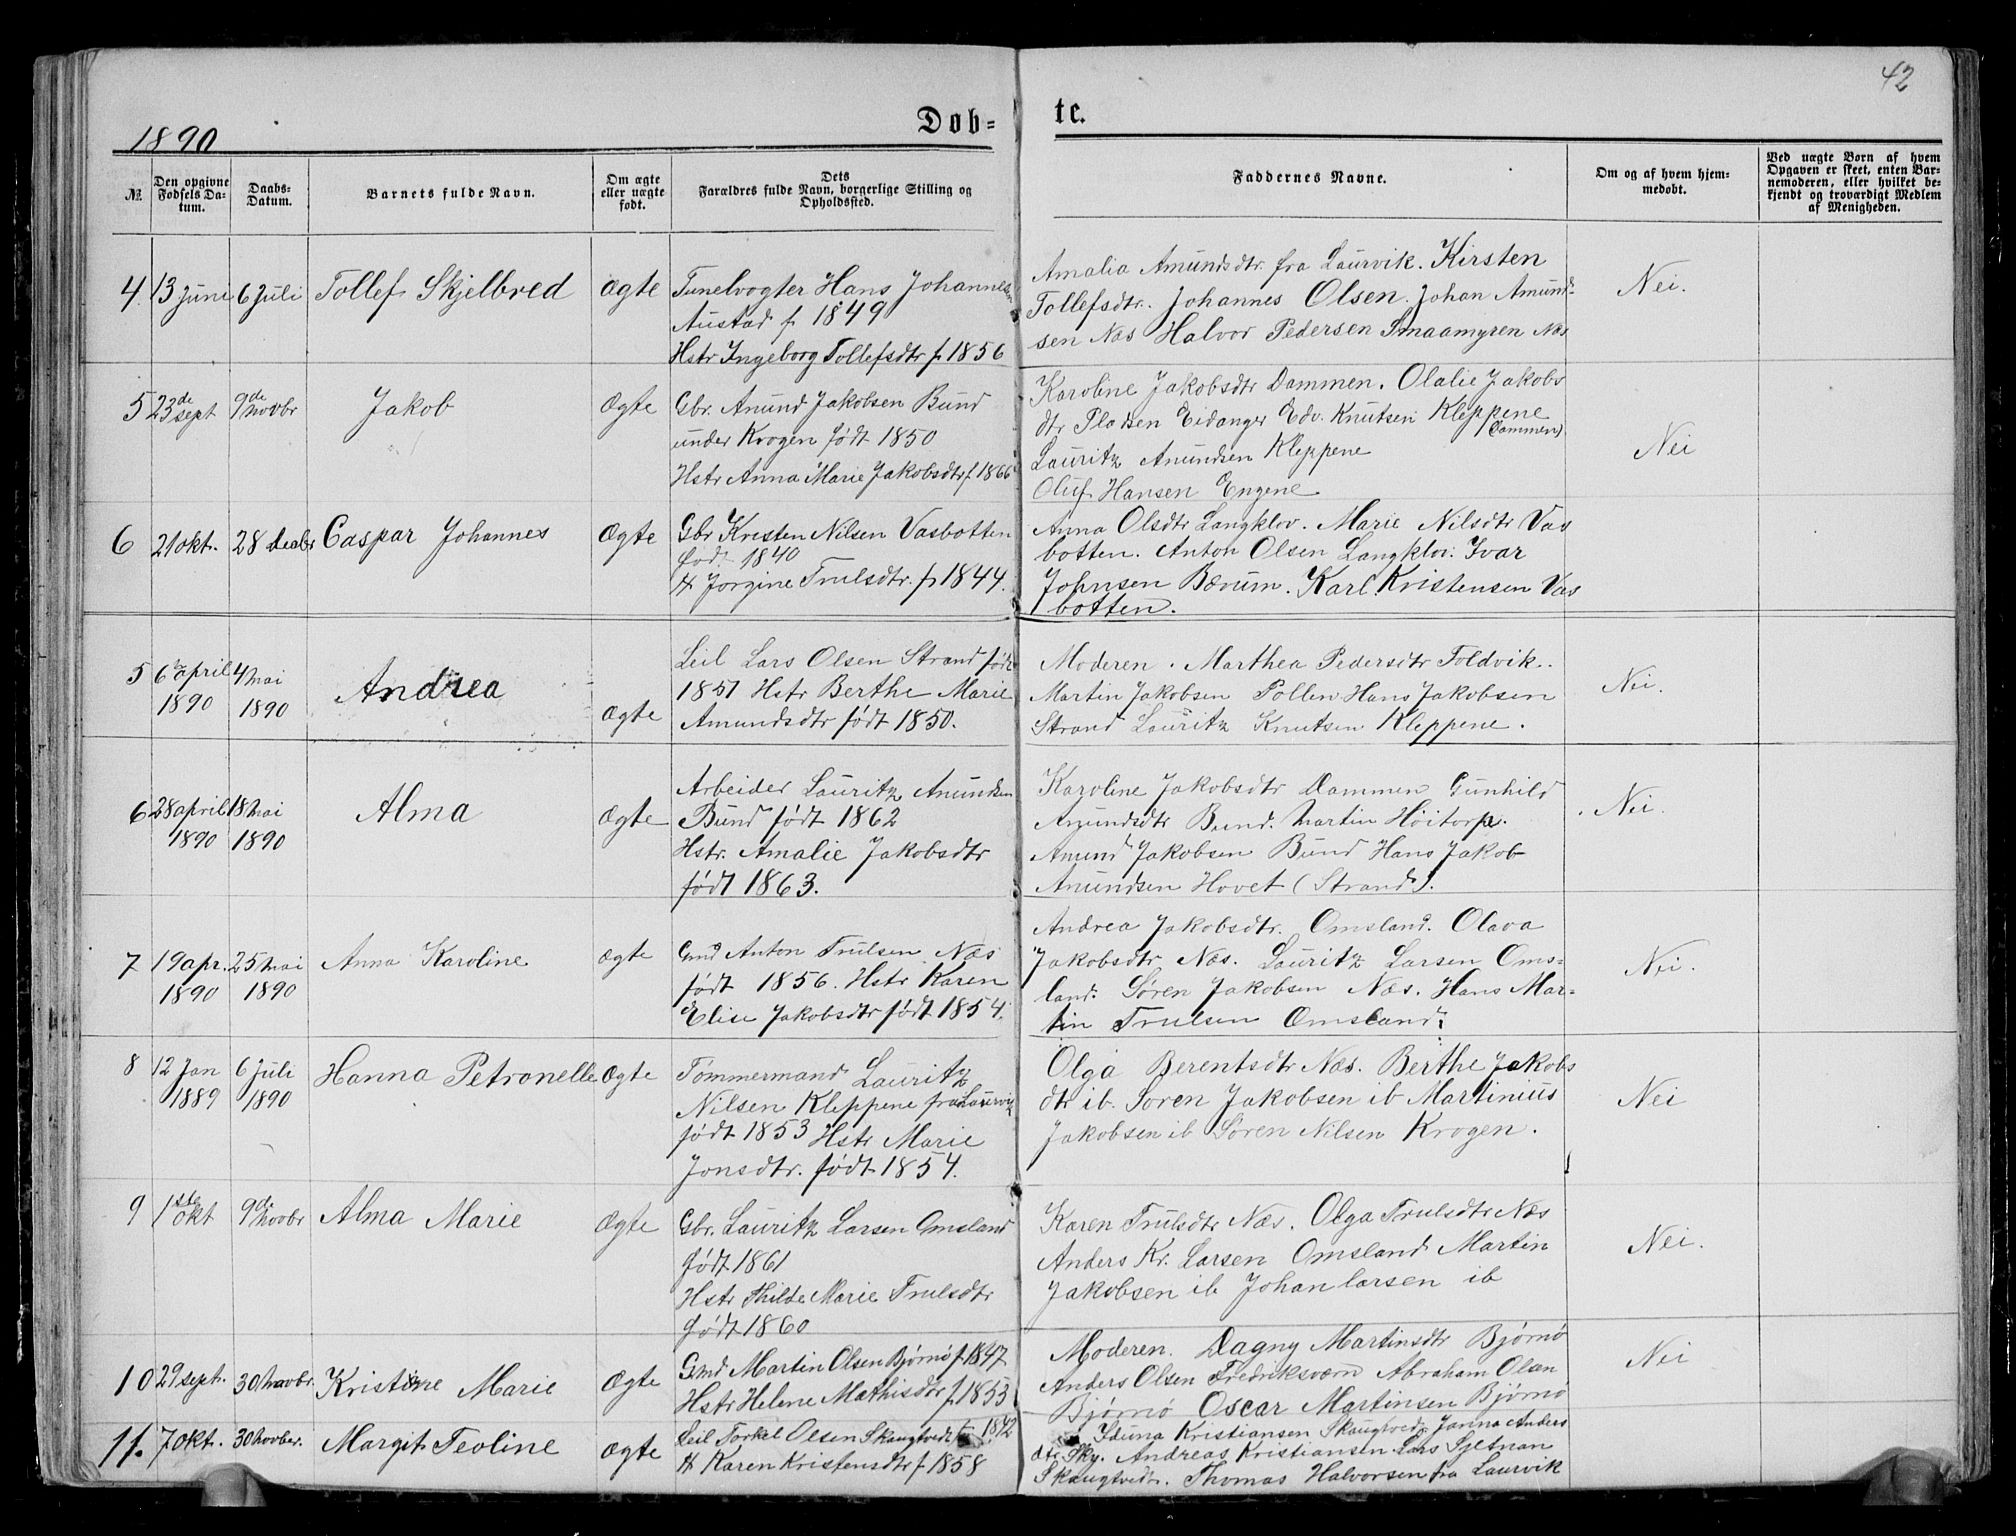 42
1890
Døb-
te.
№
Den opgivne Fødsels Datum.
Daabs-Datum.
Barnets fulde Navn.
Om ægte eller uægte født.
Dets Forældres fulde Navn, borgerlige Stilling og Opholdssted.
Faddernes Navne.
Om og af hvem hjemmedøbt.
Ved uægte Børn af hvem Opgaven er skeet, enten Barnemoderen, eller hvilket bekjendt og troværdigt Medlem af Menigheden.
4. 13 Juni 6 Juli Tollef Skjelbred ægte
Tunelvogter Hans Johannessen
Austad f. 1849
Hstr Ingeborg Tollefsdtr f 1856
Amalia Amundsdtr. fra Laurvik. Kirsten
Tollefsdtr. Johannes Olsen. Johan Amund-
sen Næs Halvor Pedersen Smaamyren Næs
Nei.
5 23de sept 9de novbr Jakob Ægte
Gbr. Anund Jakobsen Bund
under Krogen født 1850
Hstr Anna Marie Jakobsdtr f. 1866
Karoline Jakobsdtr Dammen. Olalie Jakobs
dtr Eidanger Edv. Knutsen Kleppene
(Dammen)
Lauritz Anundsen Kleppene
Oluf Hansen Engene
Nei
6 21 okt. 28 decbr Caspar Johannes Ægte
Gbr Kresten Nilsen Vasbotten
født 1840
H Jorgine Trulsdtr. f 1844.
Anna Olsdtr Langklov. Marie Nilsdtr Vas
botten. Anton Olsen Langklov. Ivar
Johnsen Bærum. Karl Kristensen Vas
botten.
5 6te april 1890 4 mai 1890 Andrea Ægte
Leil Lars Olsen Strand født
1851 Hstr Berthe Marie
Amundsdtr født 1850.
Moderen. Marthea Pedersdtr Foldvik..
Martin Jakobsen Pollen Hans Jakobsen
Strand Lauritz Knutsen Kleppene.
Nei.
6 28 april 1890 18 mai 1890 Alma Ægte
Arbeider Lauritz Anundsen
Bund født 1862
Hstr. Amalie Jakobsdtr
født 1863.
Karoline Jakobsdtr Dammen Gunhild
Anundsdtr Bund. Martin Høitorp.
Anund Jakobsen Bund Hans Jakob
Anundsen Hovet (Strand).
Nei.
7 19 apr. 1890 25 mai 1890 Anna Karoline Ægte
Gmd Anton Trulsen Næs
født 1856. Hstr Karen
Elise Jakobsdtr født 1854.
Andrea Jakobsdtr. Omsland. Olava
Jakobsdtr Næs. Lauritz Larsen Oms-
land. Søren Jakobsen Næs. Hans Mar-
tin Trulsen Omsland.
Nei.
8 12 Jan 1889 6 Juli 1890 Hanna Petronelle Ægte
Tømmermand Lauritz
Nilsen Kleppene fra Laurvik
født 1853 Hstr Marie
Jonsdtr. født 1854.
Olga Berentsdtr Næs. Berthe Jakobs
dtr ib. Søren Jakobsen ib Martinius
Jakobsen ib Søren Nilsen Krogen.
Nei
9 1ste okt 9de novbr Alma Marie Ægte
Gbr. Lauritz Larsen Omsland
født 1861
Hstr Thilde Marie Trulsdtr
født 1860
Karen Trulsdtr Næs. Olga Trulsdtr Næs
Anders Kr. Larsen Omsland Martin
Jakobsen ib Johan Larsen ib
Nei.
10 29 sept. 30 novbr. Kristine Marie Ægte
Gmd Martin Olsen Bjørnø f. 1847
Hstr Helene Mathisdtr f. 1853
Moderen. Dagny Martinsdtr Bjørnø
Anders Olsen Fredriksværn Abraham Olsen
Bjørnø Oscar Martinsen Bjørnø
Nei
11. 7 okt. 30 novber. Margit Teoline Ægte
Leil Torkel Olsen Skaugtvedt f. 1842
H Karen Kristensdtr f. 1858
Iduna Kristiansen Skaugtvedt Janna Anders
dtr Sky. Andreas Kristiansen Lars Sjetnan
Skaugtvedt. Thomas Halvorsen fra Laurvik